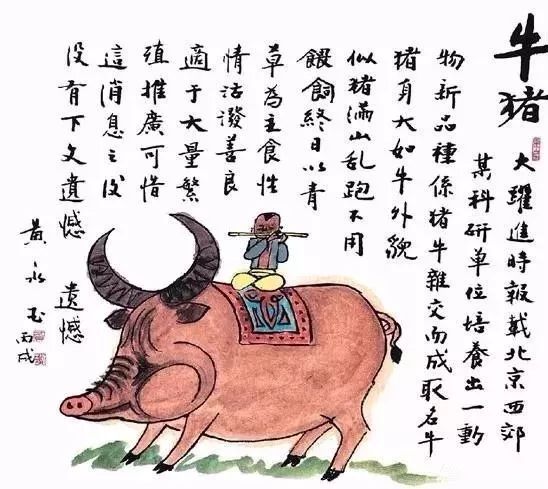 牛猪
大躍進時報載北京西郊
某科研單位培養出一動
物新品種係猪牛雜交而成取名牛
猪身大如牛外貌
似猪滿山乱跑不用
餵飼終日以青
草為主食性
情活潑善良
適于大量繁
殖推廣可惜
這消息之後
没有下文遺憾 遺憾
黄永玉
丙戌